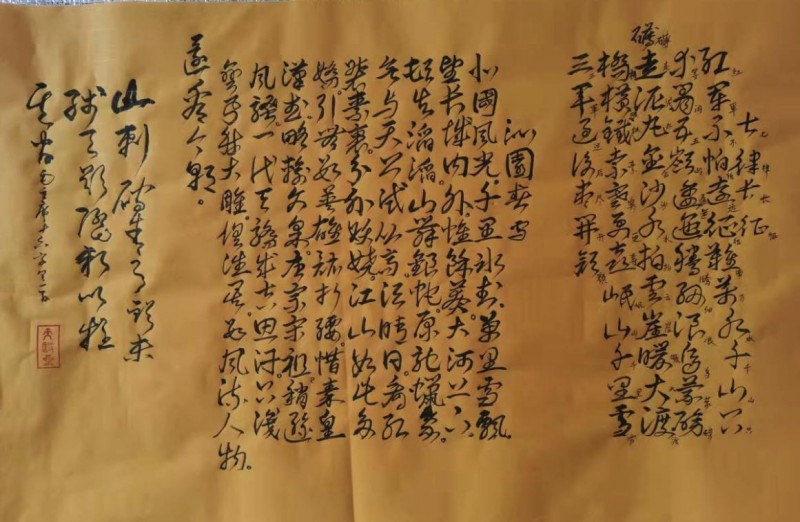 七律长征
红军不怕远征难万水千山只
等闲五岭逶迤腾细浪乌蒙磅
礴走泥丸金沙水拍云崖暖大渡
桥横铁索寒更喜岷山千里雪
三军过后尽开颜
沁園春雪
北國風光。千里冰封。萬里雪飄
望长城内外。惟餘莽。大河上下。
顿失滔滔。山舞銀蛇。原驰蠟象。
欲与天公试比高。须晴日。看红
装素裹。分外妖娆。江山如此多
娇。引无数英雄竞折腰。惜秦皇
漢武。略输文采。唐宗宋祖。稍逊
風騷。一代天骄。成吉思汗。只识
弯弓射大雕。俱往矣。数风流人物。
還看今朝。
山刺破青天锷未
残天欲隳赖以拄
其间 毛主席十六字令一首